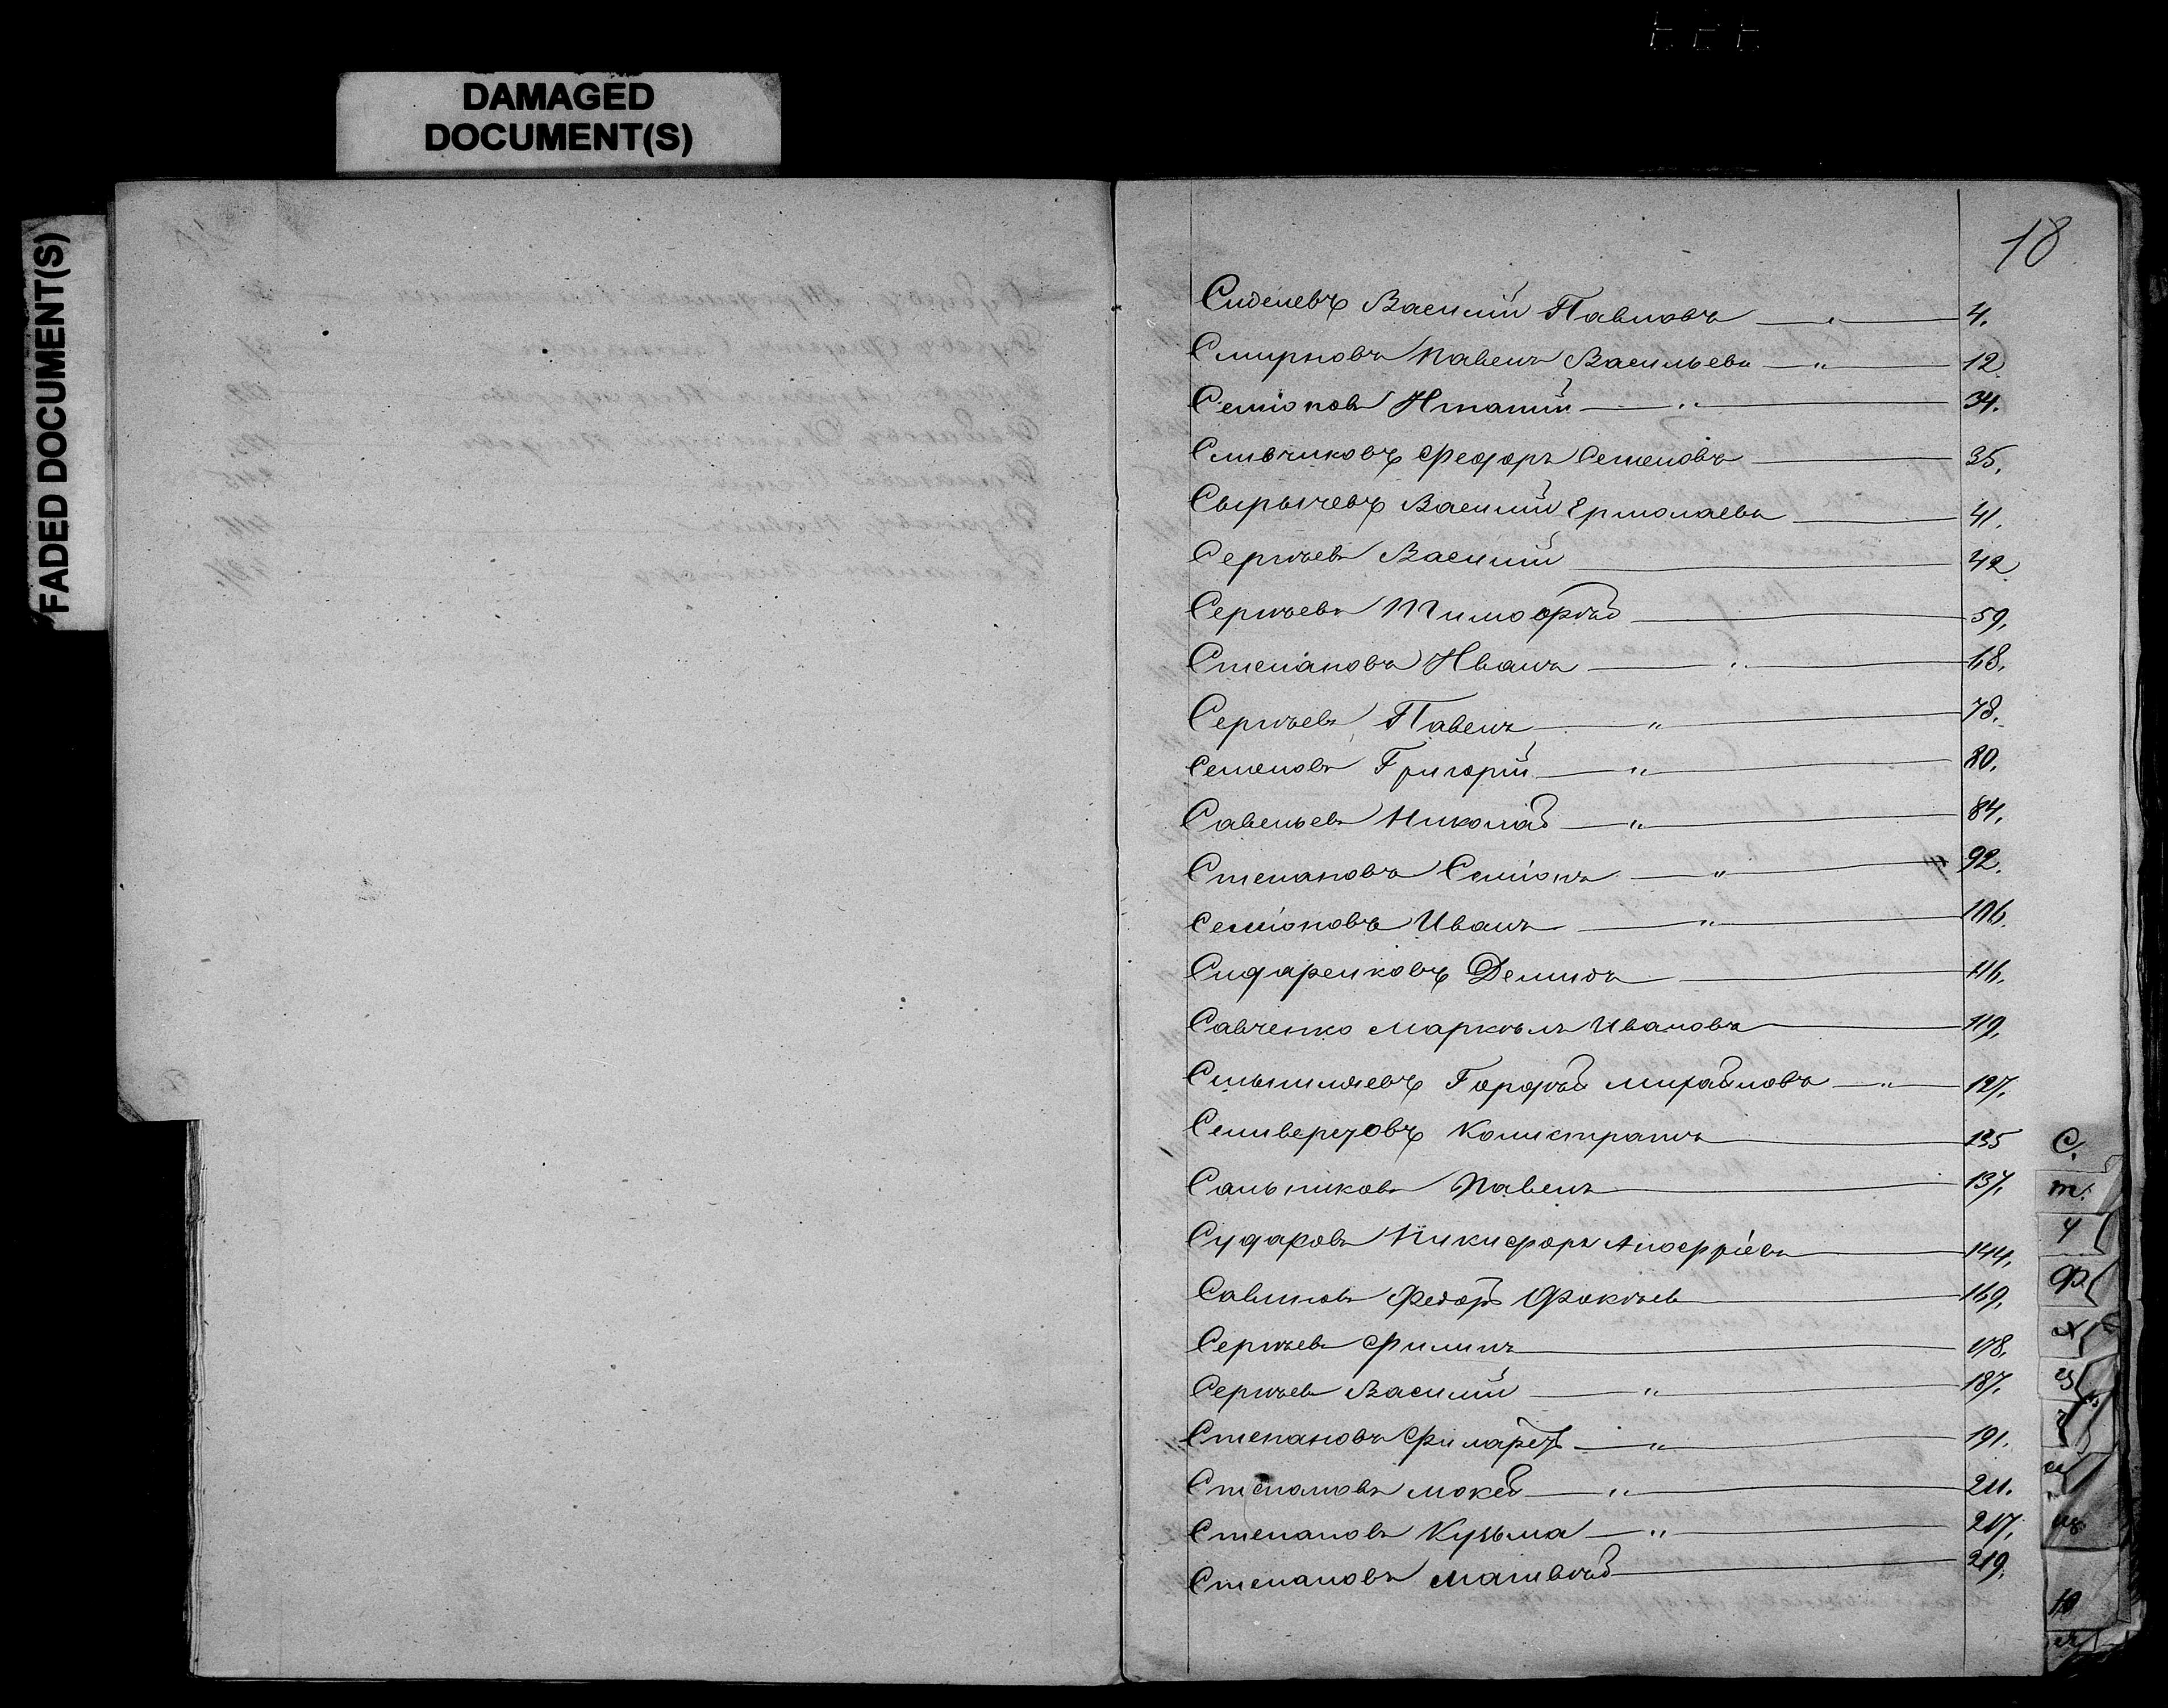 DAMAGED
DOCUMENT(S)
FADED DOCUMENT(S)
18
Сиделевъ Василий Павловъ — " — 4.
Смирновъ Павелъ Васильевъ — " — 12
Семіоновъ Игнатий — " — 34.
Сливчиковъ Федоръ Семеновъ — 35.
Сырычевъ Василий Ермолаевъ — 41.
Сергѣевъ Василий — 42
Сергѣевъ Тимофѣй — 59.
Степановъ Иванъ — " — 68.
Сергѣевъ Павелъ — " — 78.
Семеновъ Григорий — " — 80.
Савельевъ Николай — " — 84.
Степановъ Семіонъ — " — 92.
Семіоновъ Иванъ — " — 106.
Сидаренковъ Демидъ — 116.
Савченко Маркѣлъ Ивановъ — 119.
Гордѣй Михайловъ — " — 127.
Селиверстовъ Калистратъ — 135
Сальниковъ Павелъ — 137.
Сударовъ Никифоръ — 144.
Савиновъ Федоръ Фокѣевъ — 169.
Сергѣевъ Филипъ — 178.
Сергѣевъ Василий — " — 187.
Степановъ Филаретъ — " — 191.
Степановъ Мокей — " — 211.
Степановъ Кузьма — " — 217.
Степановъ Матвѣй — 219.
С.
Т.
У
Ф
Х
Ц
Ч
Ш
Щ
Ю